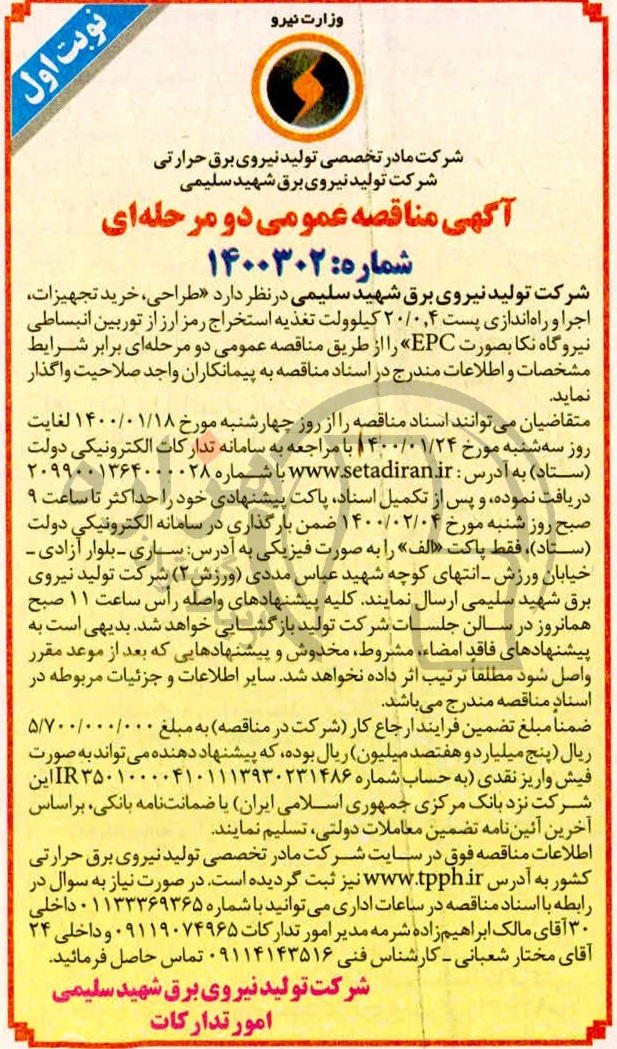 وزارت نیرو
نوبت اول
شرکت مادر تخصصی تولید نیروی برق حرارتی
شرکت تولید نیروی برق شهید سلیمی
آگهی مناقصه عمومی دو مرحله‌ای
شماره: ۱۴۰۰۳۰۲
شرکت تولید نیروی برق شهید سلیمی در نظر دارد «طراحی، خرید تجهیزات،
اجرا و راه‌اندازی پست ۲۰/۰,۴ کیلوولت تغذیه استخراج رمز ارز از توربین انبساطی
نیروگاه نکا بصورت EPC» را از طریق مناقصه عمومی دو مرحله‌ای برابر شرایط
مشخصات و اطلاعات مندرج در اسناد مناقصه به پیمانکاران واجد صلاحیت واگذار
نماید.
متقاضیان می‌توانند اسناد مناقصه را از روز چهارشنبه مورخ ۱۴۰۰/۰۱/۱۸ لغایت
روز سه‌شنبه مورخ ۱۴۰۰/۰۱/۲۴ با مراجعه به سامانه تدارکات الکترونیکی دولت
(ستاد) به آدرس: www.setadiran.ir با شماره ۲۰۹۹۰۰۱۳۶۴۰۰۰۰۲۸
دریافت نموده، و پس از تکمیل اسناد، پاکت پیشنهادی خود را حداکثر تا ساعت ۹
صبح روز شنبه مورخ ۱۴۰۰/۰۲/۰۴ ضمن بارگذاری در سامانه الکترونیکی دولت
(ستاد)، فقط پاکت «الف» را به صورت فیزیکی به آدرس: ساری ـ بلوار آزادی ـ
خیابان ورزش ـ انتهای کوچه شهید عباس مددی (ورزش۲) شرکت تولید نیروی
برق شهید سلیمی ارسال نمایند. کلیه پیشنهادهای واصله رأس ساعت ۱۱ صبح
همانروز در سالن جلسات شرکت تولید بازگشایی خواهد شد. بدیهی است به
پیشنهادهای فاقد امضاء، مشروط، مخدوش و پیشنهادهایی که بعد از موعد مقرر
واصل شود مطلقاً ترتیب اثر داده نخواهد شد. سایر اطلاعات و جزئیات مربوطه در
اسناد مناقصه مندرج می‌باشد.
ضمناً مبلغ تضمین فرایند ارجاع کار (شرکت در مناقصه) به مبلغ ۵/۷۰۰/۰۰۰/۰۰۰
ریال (پنج میلیارد و هفتصد میلیون) ریال بوده، که پیشنهاد دهنده می‌تواند به صورت
فیش واریز نقدی (به حساب شماره IR۳۵۰۱۰۰۰۰۴۱۰۱۱۱۳۹۳۰۲۳۱۴۸۶ این
شرکت نزد بانک مرکزی جمهوری اسلامی ایران) یا ضمانت‌نامه بانکی، براساس
آخرین آئین‌نامه تضمین معاملات دولتی، تسلیم نمایند.
اطلاعات مناقصه فوق در سایت شرکت مادر تخصصی تولید نیروی برق حرارتی
کشور به آدرس www.tpph.ir نیز ثبت گردیده است. در صورت نیاز به سوال در
رابطه با اسناد مناقصه در ساعات اداری می‌توانید با شماره ۰۱۱۳۳۳۶۹۳۶۵ داخلی
۳۰ آقای مالک ابراهیم‌زاده شرمه مدیر امور تدارکات ۰۹۱۱۹۰۷۴۹۶۵ و داخلی ۲۴
آقای مختار شعبانی ـ کارشناس فنی ۰۹۱۱۴۱۴۳۵۱۶ تماس حاصل فرمائید.
شرکت تولید نیروی برق شهید سلیمی
امور تدارکات